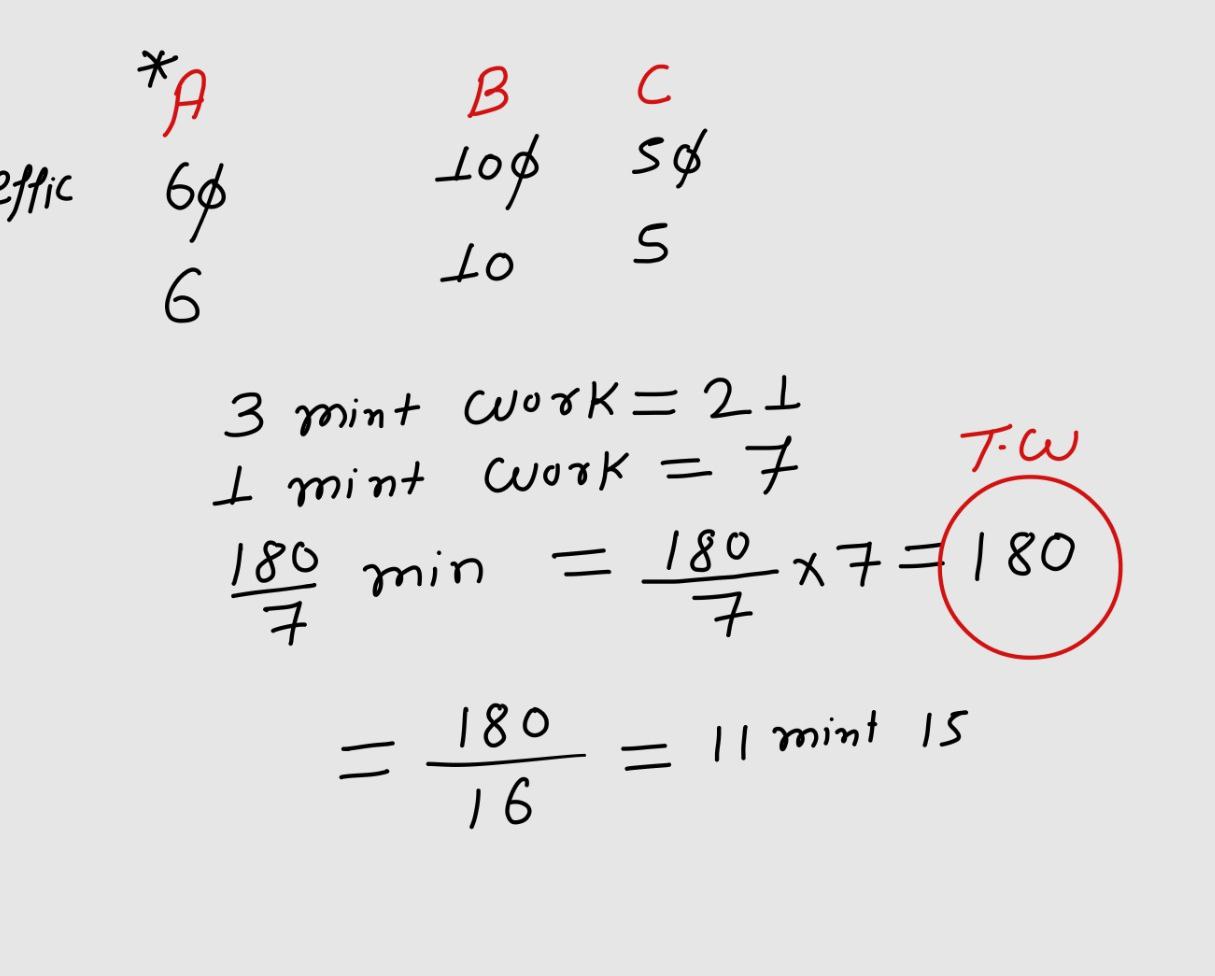 *A B C
effic 60 100 50
6 10 5
3 mint work = 21
1 mint work = 7
T.W
180/7 min = 180/7 x 7 = 180
= 180/16 = 11 mint 15